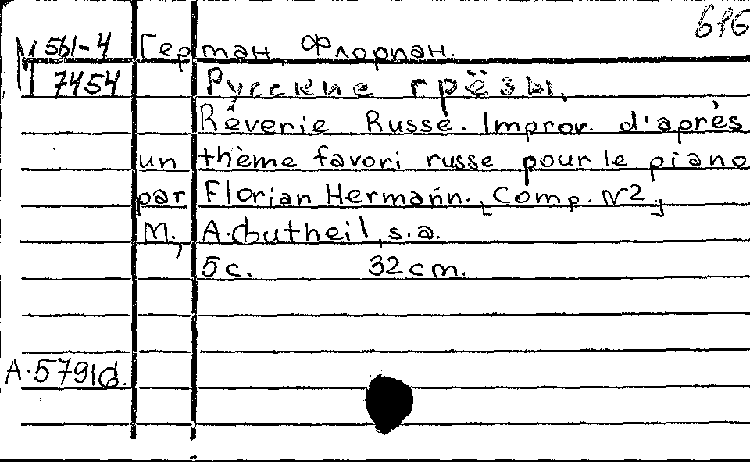 696
М 561-4 Герман Флориан.
7454 Русские грёзы.
Rêverie Russe. Improv. d'après
un thème favori russe pour le piano
par Florian Hermann. [Comp. N2]
М., A. Gutheil, s.a.
5 с. 32 cm.
A.5791d.